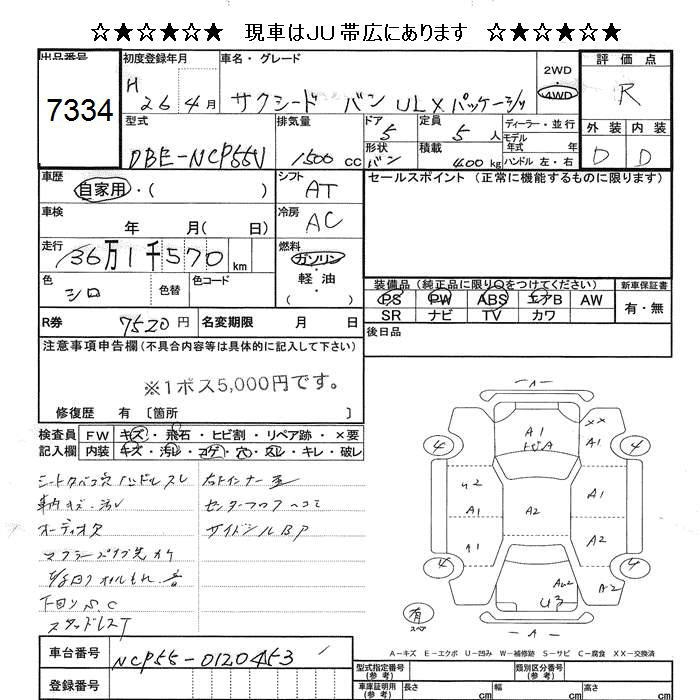 ☆★☆★☆★☆ 現車はJU帯広にあります ☆★☆★☆★☆
出品番号 初度登録年月 車名・グレード 2WD 4WD 評価点
7334 H 26 4月 サクシード バン ULXパッケージ R
型式 排気量 ドア 5 定員 5人 ディーラー・並行 外装 内装
DBE-NCP55V 1500cc 形状 バン 積載 400kg モデル年式 年式 ハンドル 左・右 D D
車歴 自家用・( ) シフト AT セールスポイント (正常に機能するものに限ります)
車検 年 月( 日) 冷房 AC
走行 36万1千570km 燃料 ガソリン
色 シロ 色替 色コード 軽・油 ( )
装備品 (純正品に限り○をつけてください) 新車保証書
PS PW ABS エアB AW 有・無
SR ナビ TV カワ
R券 7520円 名変期限 月 日
後日品
注意事項申告欄(不具合内容等は具体的に記入して下さい)
※1ボス5,000円です。
修復歴 有 〔箇所
検査員 FW キズ・飛石・ヒビ割・リペア跡・×要
記入欄 内装 キズ・汚レ・コゲ・穴・スレ・キレ・破レ
シートタバコ穴 ハンドルスレ
車内キズ・汚レ
オーディオ欠
マフラーパイプ先カケ
オイルもれ 音
下回りS.C
スタッドレスT
右Fインナー
センターフロアヘコミ
サイドシルBP
A1
XX
A1
4
4
U2
A1
A2
A1
A1
A2
4
4
AU2
U3
A2
有
スペア
A-キズ E-エクボ U-凹み W-補修跡 S-サビ C-腐食 XX-交換済
車台番号 NCP55-0120453
登録番号
型式指定番号 (参考) 類別区分番号 (参考)
車庫証明用 (参考) 長さ cm 幅 cm 高さ cm